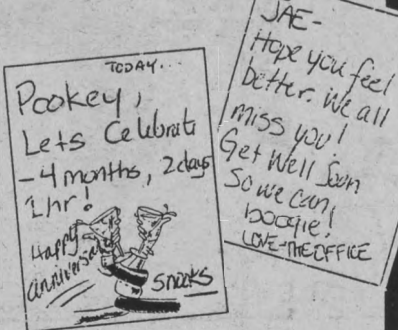 TODAY...
Pookey,
Lets Celebrate
-4 months, 2 days
1 hr!
Happy
anniversary
Snooks
JAE-
Hope you feel
better. We all
miss you!
Get Well Soon
So we can
boogie!
LOVE-THE OFFICE